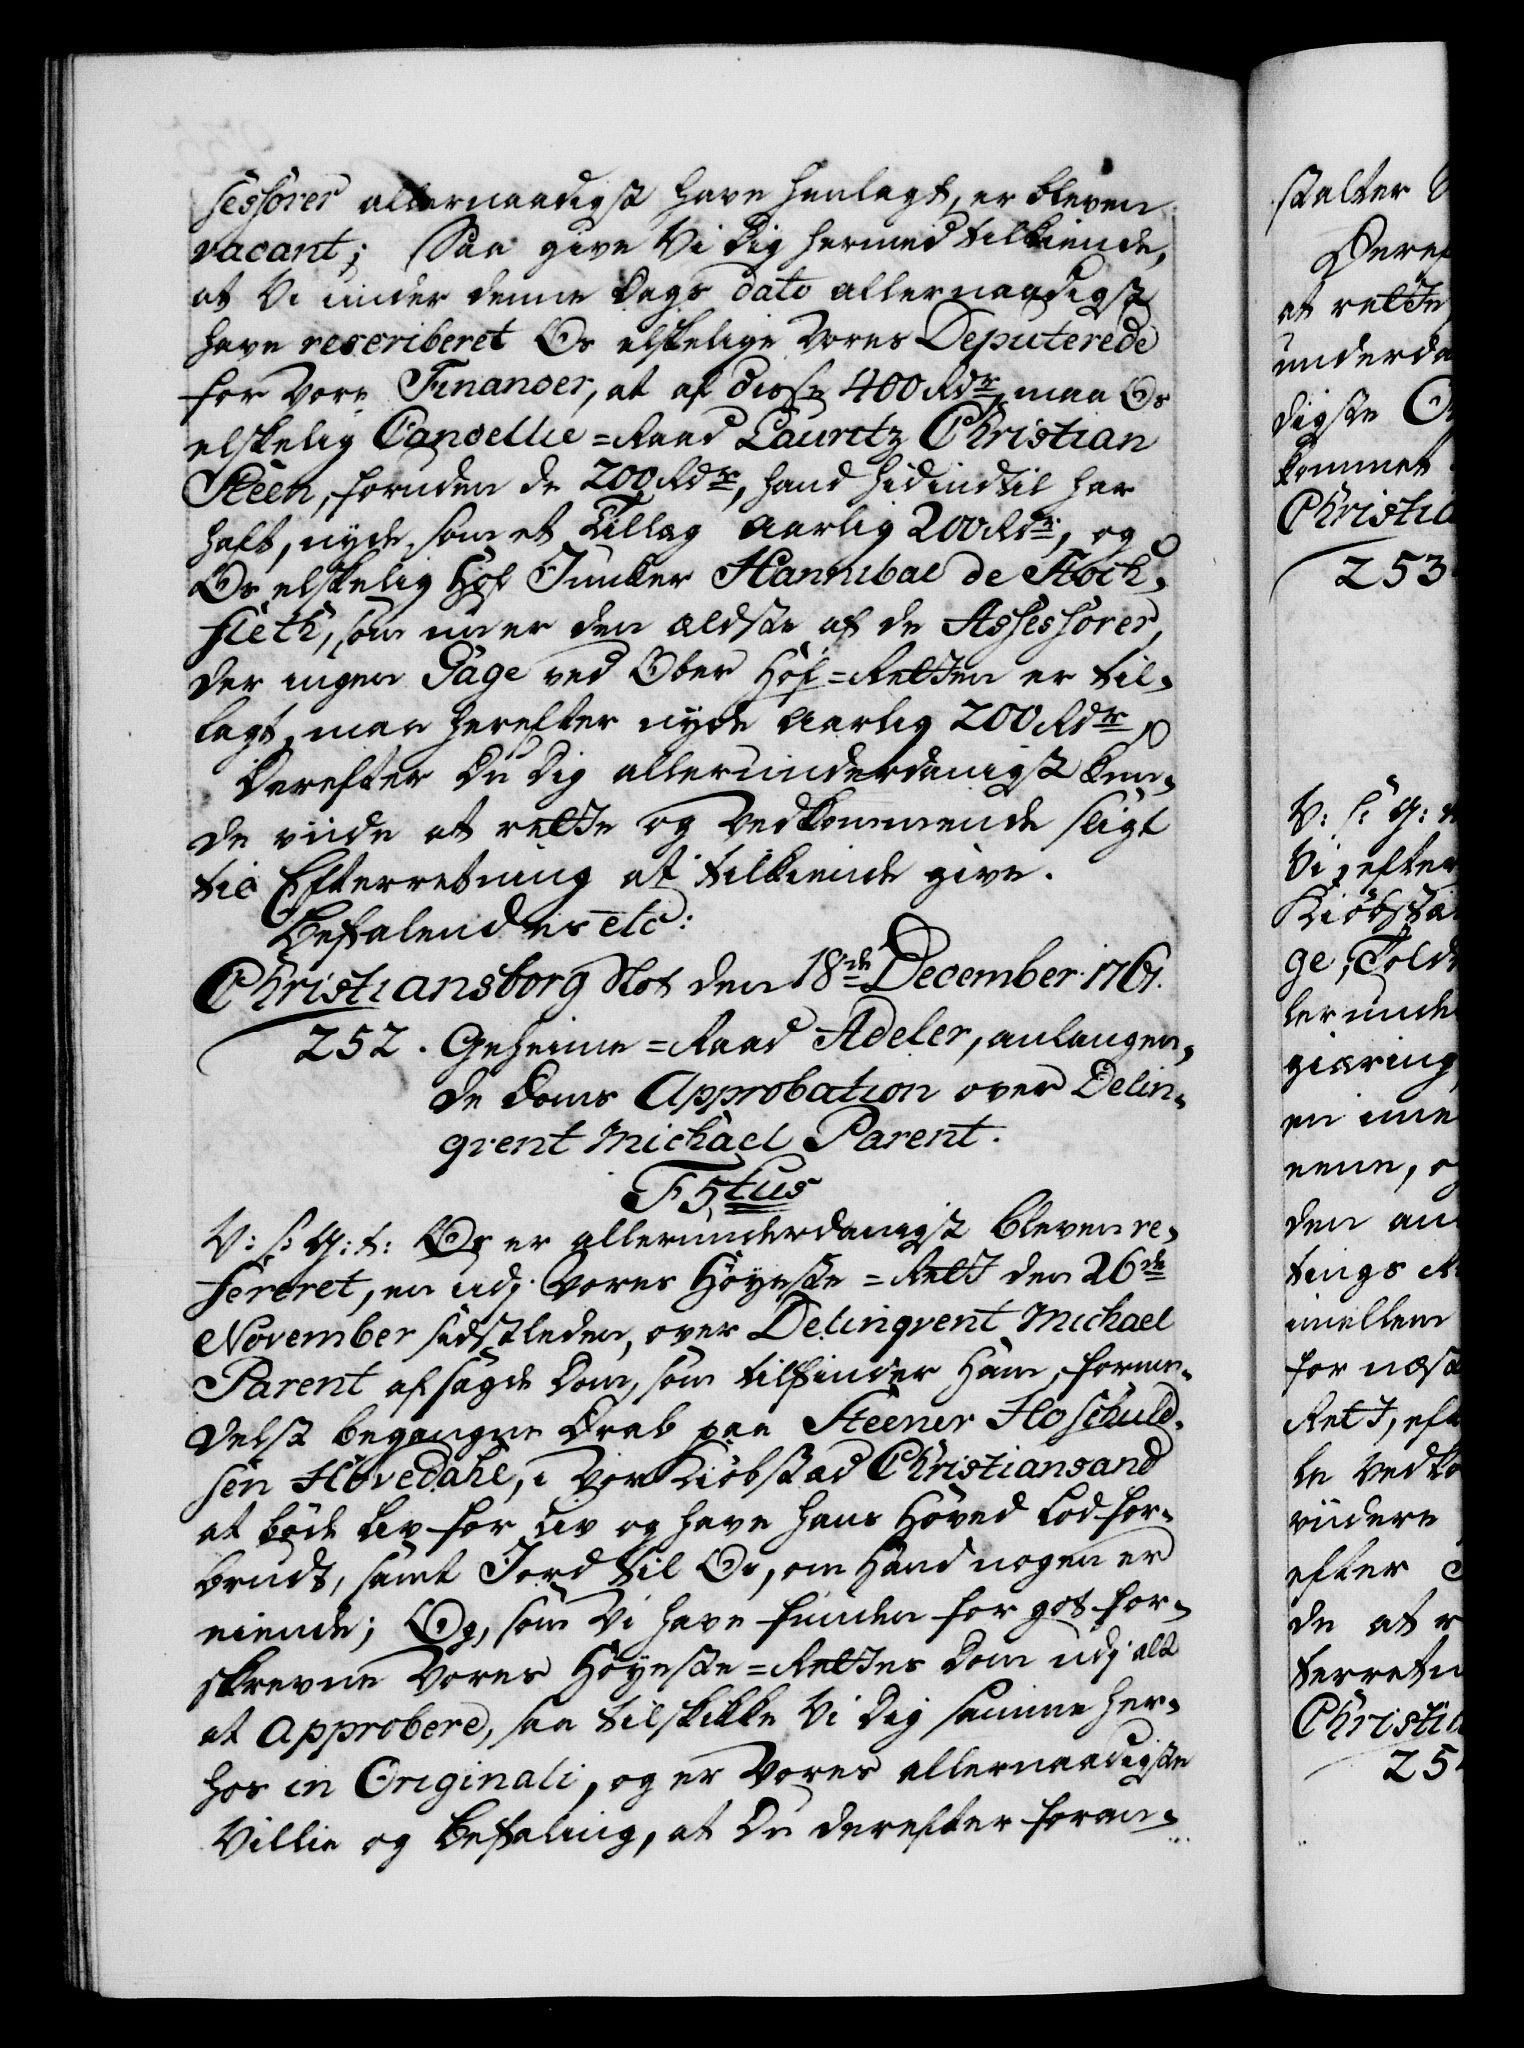 sessorer allernaadigst have henlagt, er bleven
vacant; Saa give Vi dig hermed tilkiende,
at Vi under denne Dags dato allernaadigst
have rescriberet Os elskelige Vores Deputerede
for Vore Financer, at af disse 400 Rdr, maa Os
elskelig Cancellie=Raad Lauritz Christian
Steen, foruden de 200 Rdr, hand hidindtil har
haft, nyde som et Tillæg aarlig 200 Rdr, og
Os elskelig Hof Junker Hannibal de Stock-
fleth, som nu er den ældste af de Assessorer,
der ingen Gage ved Ober Hof=Retten er til-
lagt, maa herefter nyde aarlig 200 Rdr
Derefter Du dig allerunderdanigst kun-
de viide at rette og vedkommende sligt
til Efterretning at tilkiende give.
Befalendes etc:
Christiansborg Slot den 18de December 1761.
252. Geheime=Raad Adeler, anlangen-
de Doms Approbation over Delin-
qvent Michael Parent.
F5tus
V: s: G: t: Os er allerunderdanigst bleven re-
fereret, en udj Vores Höyeste=Rett den 26de
November sidstleden, over Delinqvent Michael
Parent afsagde Dom, som tilfinder Ham, forme-
delst begangne Drab paa Steener Hoschuld-
sen Hovedahl, i Vor Kiöbstad Christiansand
at böde Liv for Liv og have hans Hoved Lod for-
brudt, samt Jord til Os, om Hand nogen er
eiende; Og, som Vi have funden for got for-
skrevne Vores Höyeste=Rettes Dom udj alt
at approbere, saa tilskikke Vi dig samme her-
hos in Originali, og er Vores allernaadigste
Villie og Befaling, at Du derefter foran-
253